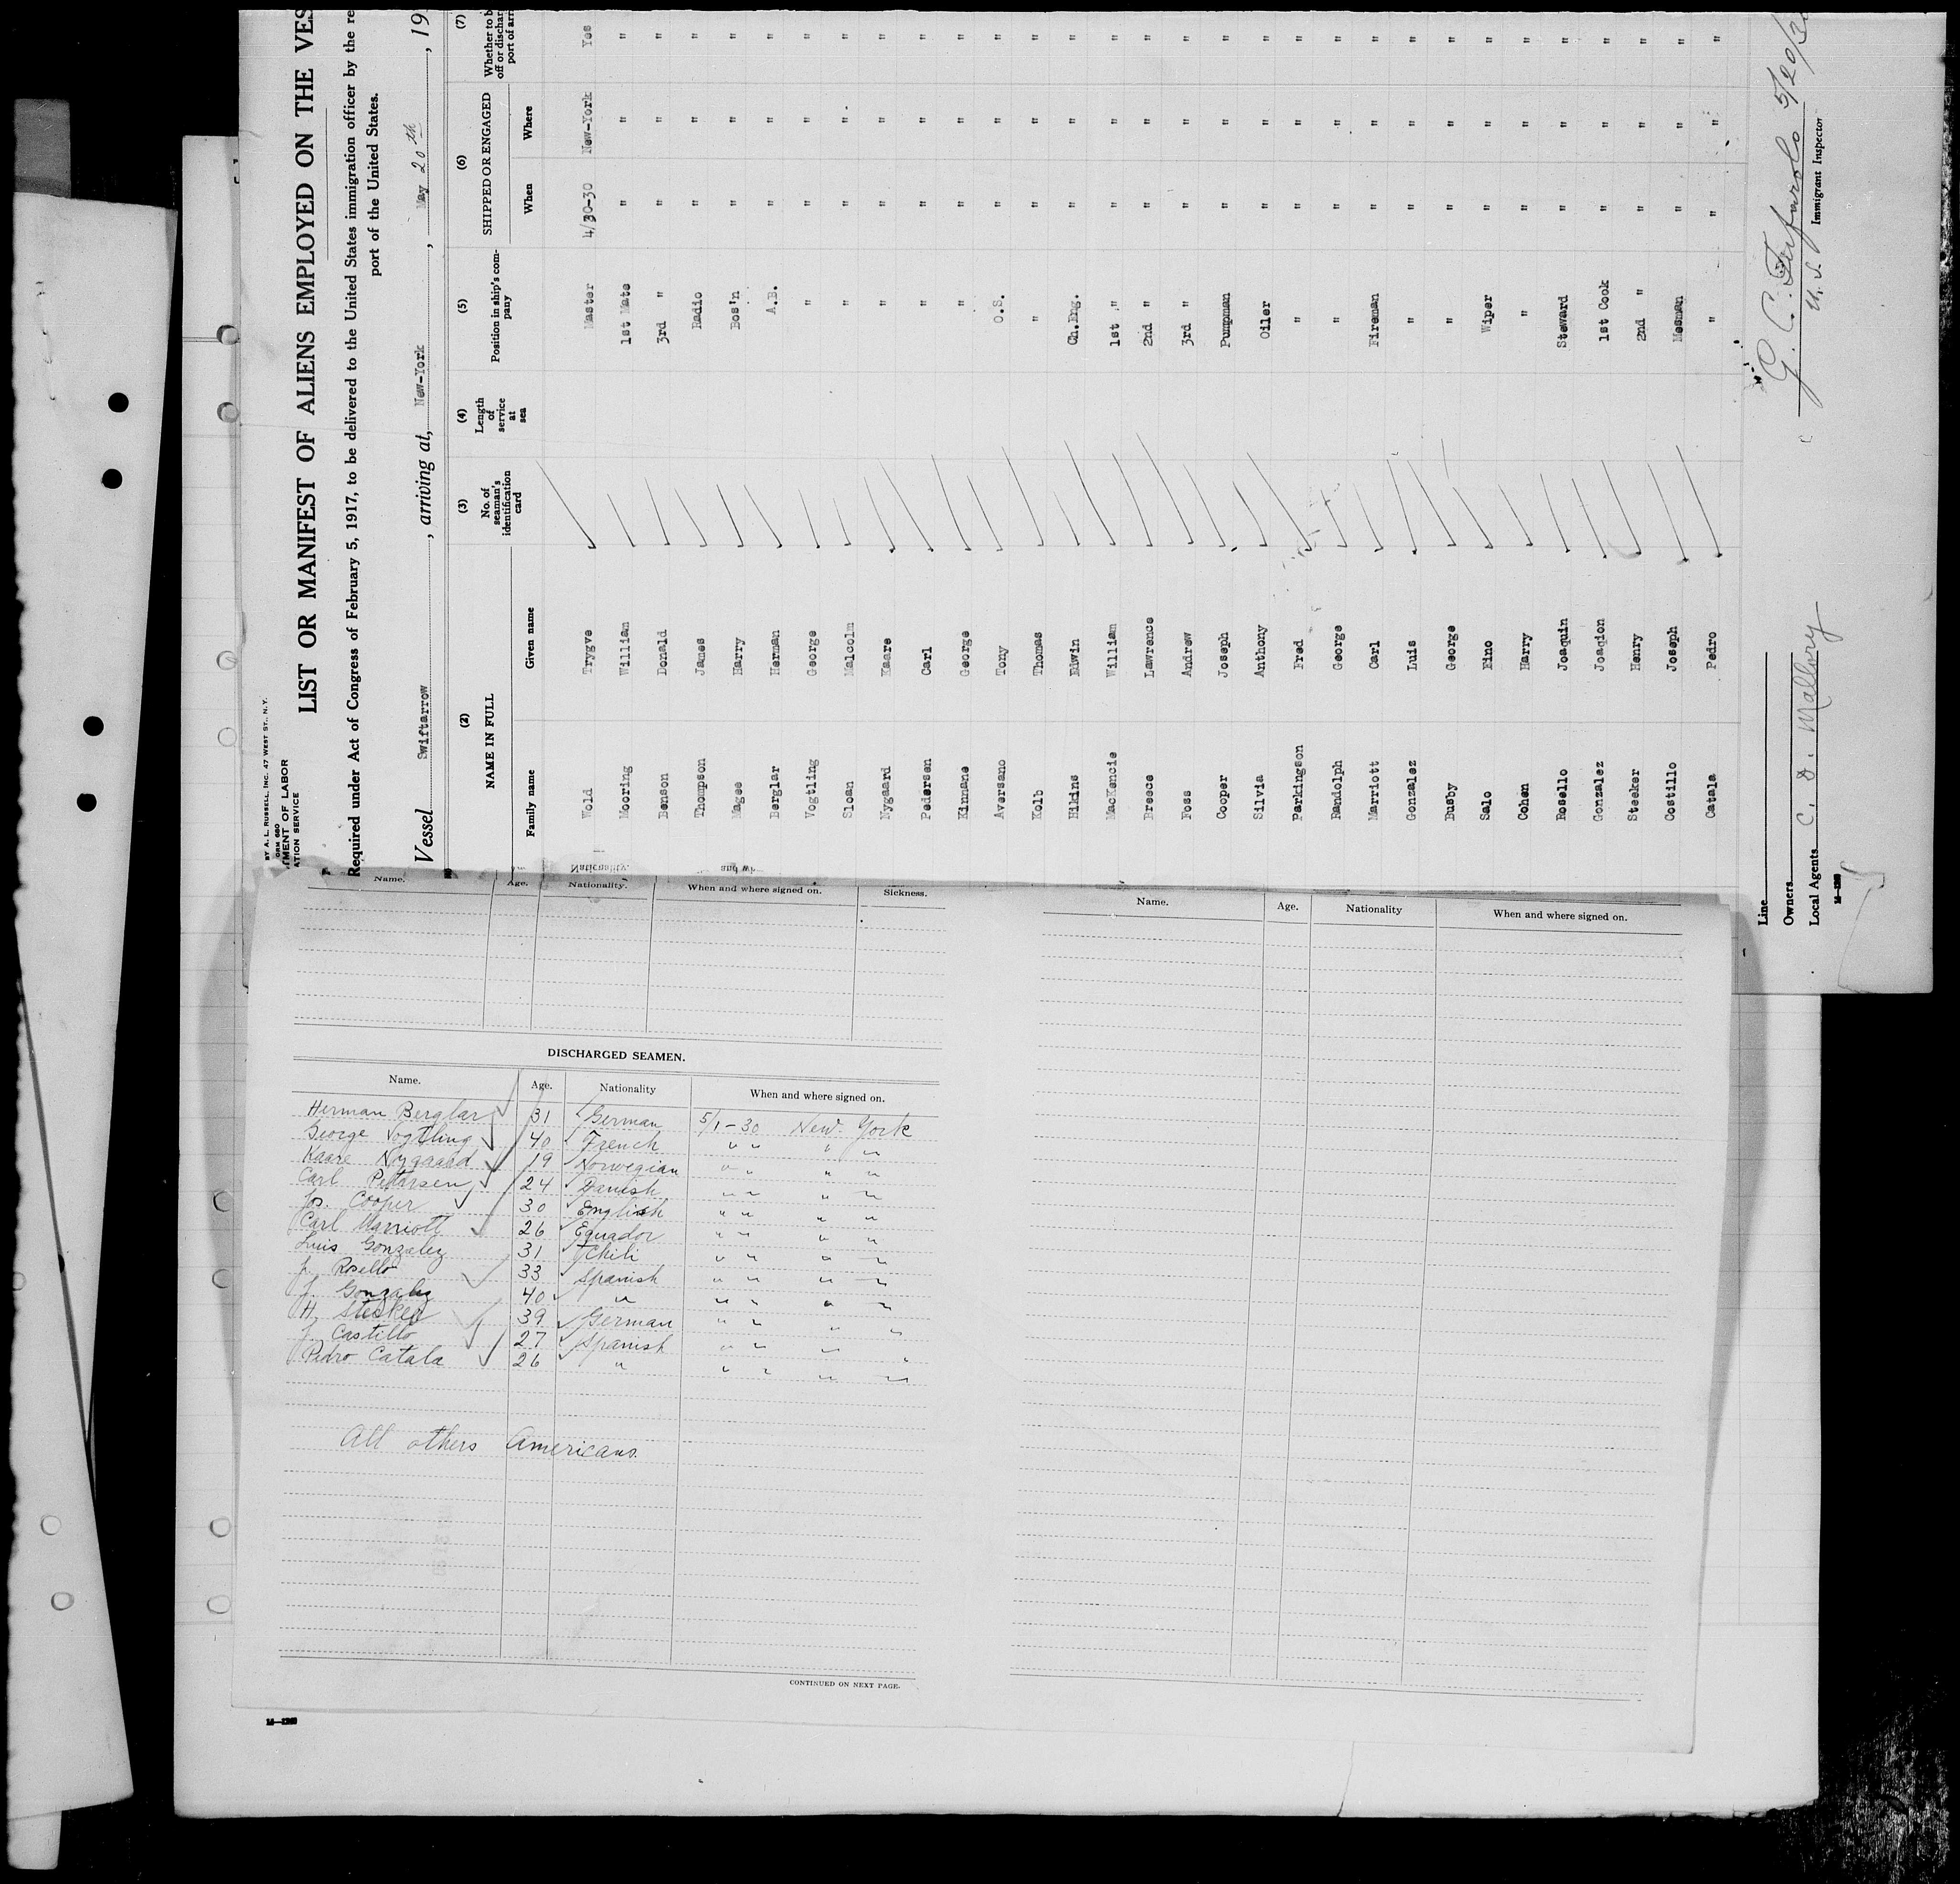 BY A. L. RUSSELL, INC. 47 WEST ST., N.Y.
ORM 680
TMENT OF LABOR
ATION SERVICE
LIST OR MANIFEST OF ALIENS EMPLOYED ON THE VES
Required under Act of Congress of February 5, 1917, to be delivered to the United States immigration officer by the re
port of the United States.
Vessel Swiftarrow, arriving at, New-York, May 20th, 19
(2) (3) (4) (5) (6) (7)
NAME IN FULL No. of seaman's identification card Length of service at sea Position in ship's company SHIPPED OR ENGAGED Whether to b off or dischar port of arri
Family name Given name When Where
Wold Trygve Master 4/30-30 New-York Yes
Mooring Willian 1st Mate " " "
Benson Donald 3rd " " " "
Thompson James Radio " " "
Magee Harry Bos'n " " "
Berglar Herman A.B. " " "
Vogtling George " " " "
Sloan Malcolm " " " "
Nygaard Kaare " " " "
Pedersen Carl " " " "
Kinnane George " " " "
Aversano Tony O.S. " " "
Kolb Thomas " " " "
Hikins Edwin Ch.Eng. " " "
MacKencie William 1st " " " "
Breece Lawrence 2nd " " " "
Foss Andrew 3rd " " " "
Cooper Joseph Pumpman " " "
Silvia Anthony Oiler " " "
Parkingson Fred " " " "
Randolph George " " " "
Marriott Carl Fireman " " "
Gonzalez Luis " " " "
Busby George " " " "
Salo Eino Wiper " " "
Cohen Harry " " " "
Rosello Joaquin Steward " " "
Gonzalez Joaqion 1st Cook " " "
Steeker Henry 2nd " " " "
Costillo Joseph Mesman " " "
Catala Pedro " " " "
Line
Owners
Local Agents C. D. Mallory
G. C. 5/20/30
U. S. Immigrant Inspector
Name. Age. Nationality. When and where signed on. Sickness.
DISCHARGED SEAMEN.
Name. Age. Nationality When and where signed on.
Herman Berglar 31 German 5/1-30 New York
George Vogtling 40 French " " " "
Kaare Nygaard 19 Norwegian " " " "
Carl Petarsen 24 Danish " " " "
Jos. Cooper 30 English " " " "
Carl Marriott 26 Equador " " " "
Luis Gonzalez 31 Chili " " " "
J. Rosello 33 Spanish " " " "
J. Gonzalez 40 " " " " "
H. Steeker 39 German " " " "
J. Castillo 27 Spanish " " " "
Pedro Catala 26 " " " " "
All others Americans.
CONTINUED ON NEXT PAGE.
Name. Age. Nationality When and where signed on.